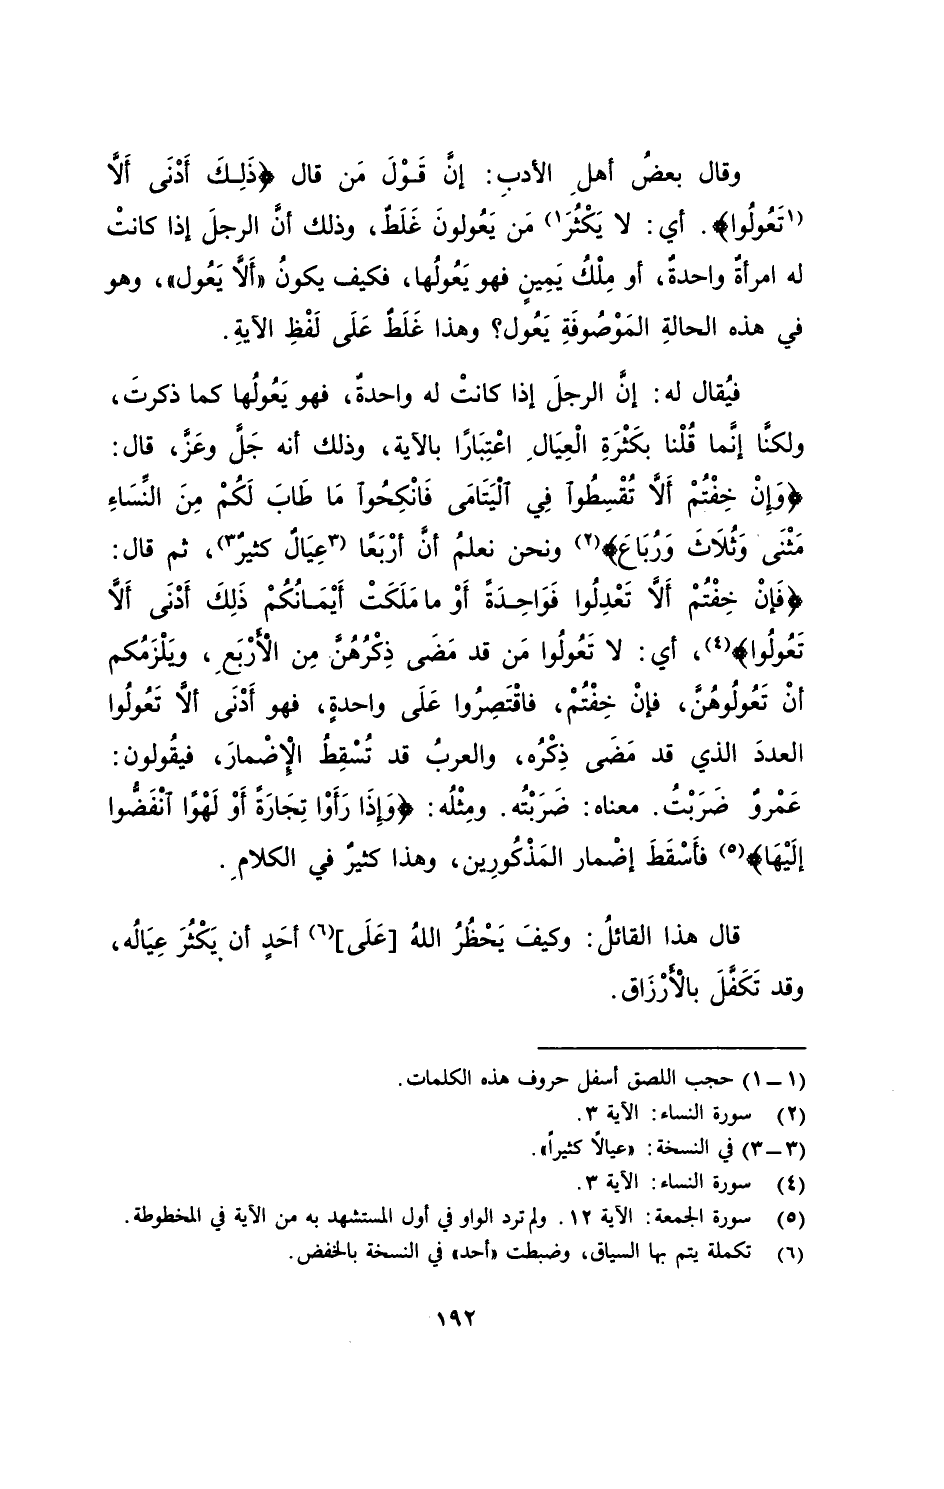 وقال بعضُ أهلِ الأدبِ: إنَّ قَوْلَ مَن قال ﴿ذَلِكَ أَدْنَى أَلاَّ
(١تَعُولُوا﴾. أي: لا يَكْثُرَ١) مَن يَعُولونَ غَلَطٌ، وذلك أنَّ الرجلَ إذا كانتْ
له امرأةٌ واحدةٌ، أو مِلْكُ يَمِينٍ فهو يَعُولُها، فكيف يكونُ «ألاَّ يَعُول»، وهو
في هذه الحالةِ المَوْصُوفَةِ يَعُول؟ وهذا غَلَطٌ عَلَى لَفْظِ الآيةِ.
فيُقال له: إنَّ الرجلَ إذا كانتْ له واحدةٌ، فهو يَعُولُها كما ذكرتَ،
ولكنَّا إنَّما قُلْنا بكَثْرَةِ الْعِيَالِ اعْتِبَارًا بالآية، وذلك أنه جَلَّ وعَزَّ، قال:
﴿وَإِنْ خِفْتُمْ أَلاَّ تُقْسِطُوآ فِي ٱلْيَتَامَى فَانْكِحُوآ مَا طَابَ لَكُمْ مِنَ النِّسَاءِ
مَثْنَى وَثُلَاثَ وَرُبَاعَ﴾(٢) ونحن نعلمُ أنَّ أرْبَعًا (٣عِيَالٌ كثيرٌ٣)، ثم قال:
﴿فَإِنْ خِفْتُمْ أَلاَّ تَعْدِلُوا فَوَاحِدَةً أَوْ ما مَلَكَتْ أَيْمَانُكُمْ ذَلِكَ أَدْنَى أَلاَّ
تَعُولُوا﴾(٤)، أي: لا تَعُولُوا مَن قد مَضَى ذِكْرُهُنَّ مِن الْأَرْبَعِ، ويَلْزَمُكم
أنْ تَعُولُوهُنَّ، فإنْ خِفْتُمْ، فاقْتَصِرُوا عَلَى واحدةٍ، فهو أَدْنَى ألاَّ تَعُولُوا
العددَ الذي قد مَضَى ذِكْرُه، والعربُ قد تُسْقِطُ الْإِضْمارَ، فيقُولون:
عَمْروٌ ضَرَبْتُ. معناه: ضَرَبْتُه. ومِثْلُه: ﴿وَإِذَا رَأَوْا تِجَارَةً أَوْ لَهْوًا ٱنْفَضُّوا
إلَيْهَا﴾(٥) فأَسْقَطَ إضْمار المَذْكُورِين، وهذا كثيرٌ في الكلامِ.
قال هذا القائلُ: وكيفَ يَحْظُرُ اللهُ [عَلَى](٦) أحَدٍ أن يَكْثُرَ عِيَالُه،
وقد تَكَفَّلَ بالْأَرْزَاق.
(١ – ١) حجب اللصق أسفل حروف هذه الكلمات.
(٢) سورة النساء: الآية ٣.
(٣ – ٣) في النسخة: «عيالاً كثيراً».
(٤) سورة النساء: الآية ٣.
(٥) سورة الجمعة: الآية ١٢. ولم ترد الواو في أول المستشهد به من الآية في المخطوطة.
(٦) تكملة يتم بها السياق، وضبطت «أحد» في النسخة بالخفض.
١٩٢